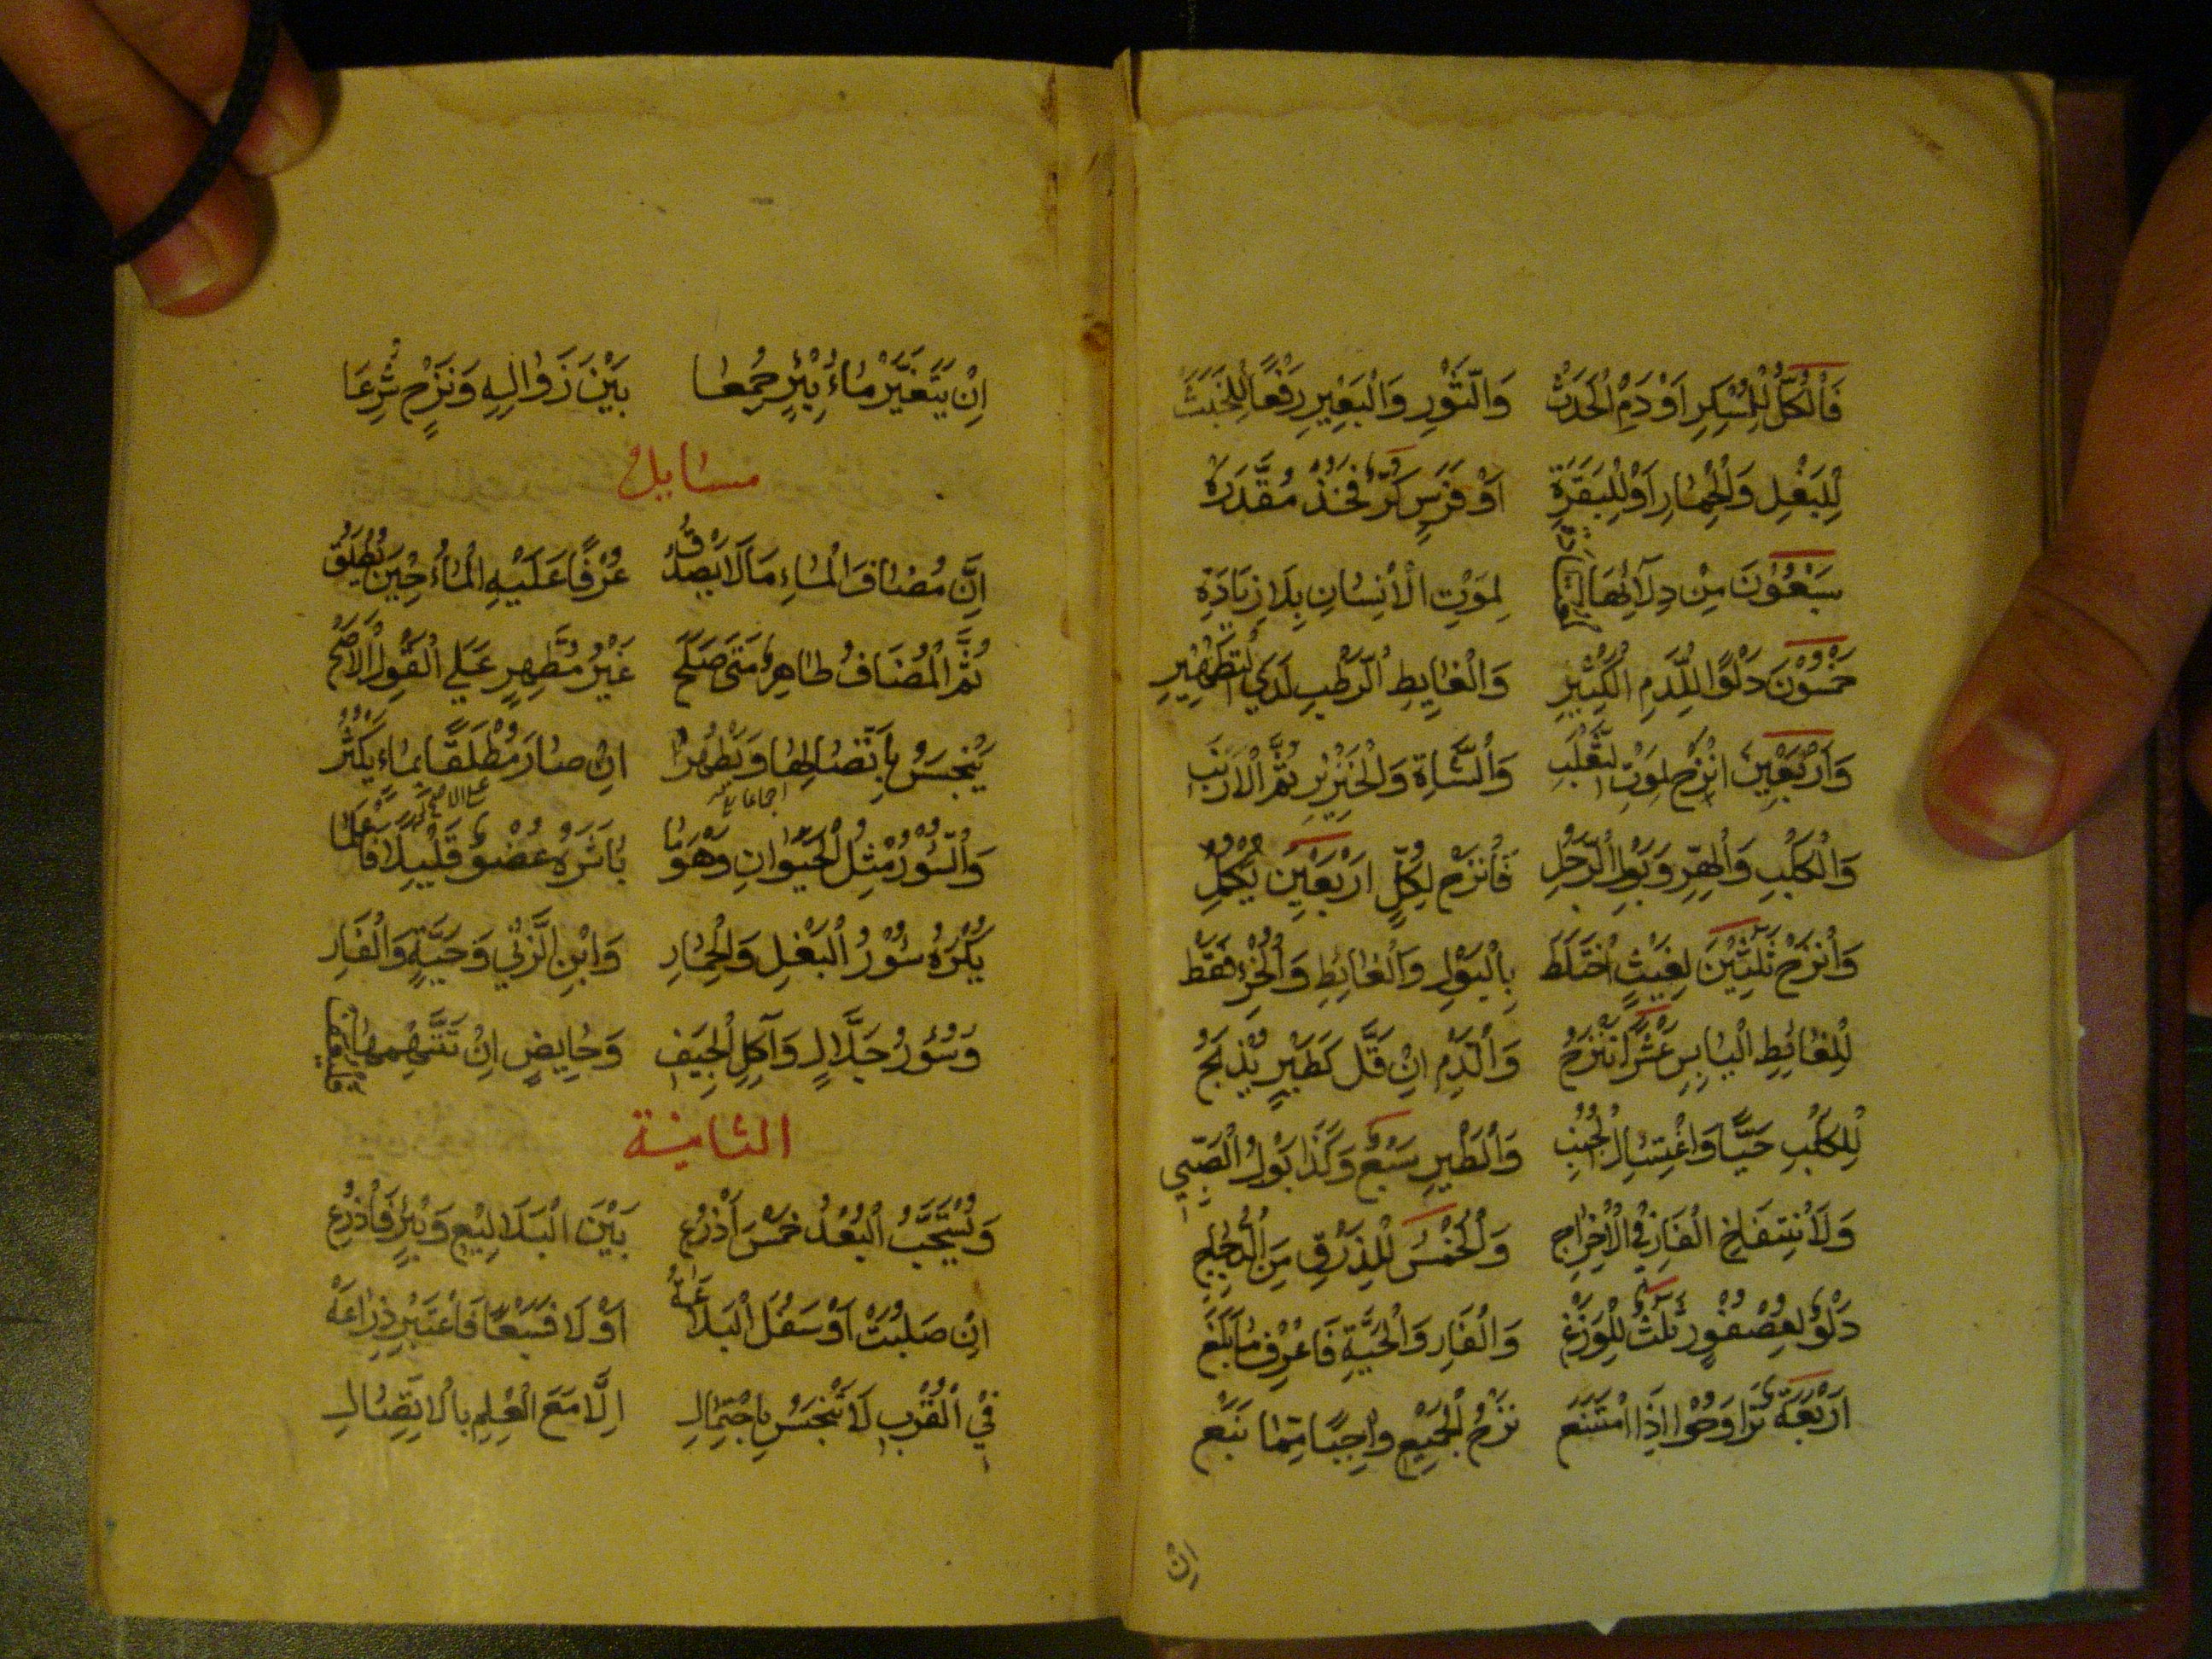 فَالْكُلُّ لِلْمُسْكِرِ اَوْ دَمِ الْحَدَثْ وَالثَّوْرِ وَالْبَعِيْرِ رَفْعًا لِلْخَبَثْ
لِلْبَغْلِ وَالْحِمَارِ اَوْ لِلْبَقَرَةِ اَوْ فَرَسٍ كُرٌّ فَخُذْ مُقَدَّرَهُ
سَبْعُوْنَ مِنْ دِلَائِهَا لِمَوْتِ الْاِنْسَانِ بِلَا زِيَادَةِ
خَمْسُوْنَ دَلْوًا لِلدَّمِ الْكَثِيْرِ وَالْغَايِطِ الرَّطْبِ لَدَي التَّطْهِيْرِ
وَاَرْبَعِيْنَ انْزَحْ لِمَوْتِ الثَّعْلَبِ وَالشَّاةِ وَالْخِنْزِيْرِ ثُمَّ الْاَرْنَبِ
وَالْكَلْبِ وَالْهِرِّ وَبَوْلِ الرَّجُلِ فَانْزَحْ لِكُلٍّ اَرْبَعِيْنَ يُكْمَلِ
وَانْزَحْ ثَلٰثِيْنَ لِغَيْثٍ اخْتَلَطَ بِالْبَوْلِ وَالْغَائِطِ وَالْخُرْءِ فَقَطْ
لِلْغَائِطِ الْيَابِسِ عَشْرًا تَنْزَحُ وَالدَّمِ اِنْ قَلَّ كَطَيْرٍ يُذْبَحُ
لِلْكَلْبِ حَيًّا وَاغْتِسَالِ الْجُنُبِ وَالطَّيْرِ سَبْعٌ وَكَذَا بَوْلُ الصَّبِي
وَلِانْتِفَاخِ الْفَارِ فِي الْاِخْرَاجِ وَالْخَمْسُ لِلذَّرْقِ مِنَ الدَّجَاجِ
دَلْوٌ لِعُصْفُوْرٍ ثَلٰثٌ لِلْوَزَغْ وَالْفَارِ وَالْحَيَّةِ فَاعْرِفْ مَا بَلَغَ
اَرْبَعَةٌ تَرَاوَحُوْا اِذَا امْتَنَعَ نَزْحُ الْجَمِيْعِ وَاجِبًا مِمَّا نَبَعَ
اِنْ
اِنْ يَتَغَيَّرْ مَاءُ بِئْرٍ جُمِعَا بَيْنَ زَوَالِهِ وَنَزْحٍ شُرِعَا
مسايل
اِنَّ مُضَافَ الْمَاءِ مَا لَا يَصْدُقُ عُرْفًا عَلَيْهِ الْمَاءُ حِيْنَ يُطْلَقُ
ثُمَّ الْمُضَافُ طَاهِرٌ مَتَى صَلَحْ غَيْرُ مُطَهِّرٍ عَلَي الْقَوْلِ الْاَصَحْ
يَنْجُسُ بِاتِّصَالِهَا وَيَطْهُرُ اِنْ صَارَ مُطْلَقًا بِمَاءٍ يَكْثُرُ
وَالسُّوْرُ مِثْلُ الْحَيَوَانِ وَهْوَ مَا بَاشَرَهُ عُضْوٌ قَلِيْلًا فَاعْلَمَا
يُكْرَهُ سُوْرُ الْبَغْلِ وَالْحِمَارِ وَابْنِ الزِّنٰي وَحَيَّةٍ وَالْفَارِ
وَسُوْرُ جَلَّالٍ وَآكِلِ الْجِيَفِ وَحَايِضٍ اِنْ تَتَّهِمْهَا
الثانية
وَيُسْتَحَبُّ الْبُعْدُ خَمْسَ اَذْرُعِ بَيْنَ الْبَلَالِيْعِ وَبِئْرٍ فَاذْرَعِ
اِنْ صَلُبَتْ اَوْ سَفُلَ الْبَلَّاعَهْ اَوْ لَا فَسَبْعًا فَاعْتَبِرْ ذِرَاعَهْ
فِي الْقُرْبِ لَا تَنْجُسُ بِاحْتِمَالِ اِلَّا مَعَ الْعِلْمِ بِالْاِتِّصَالِ